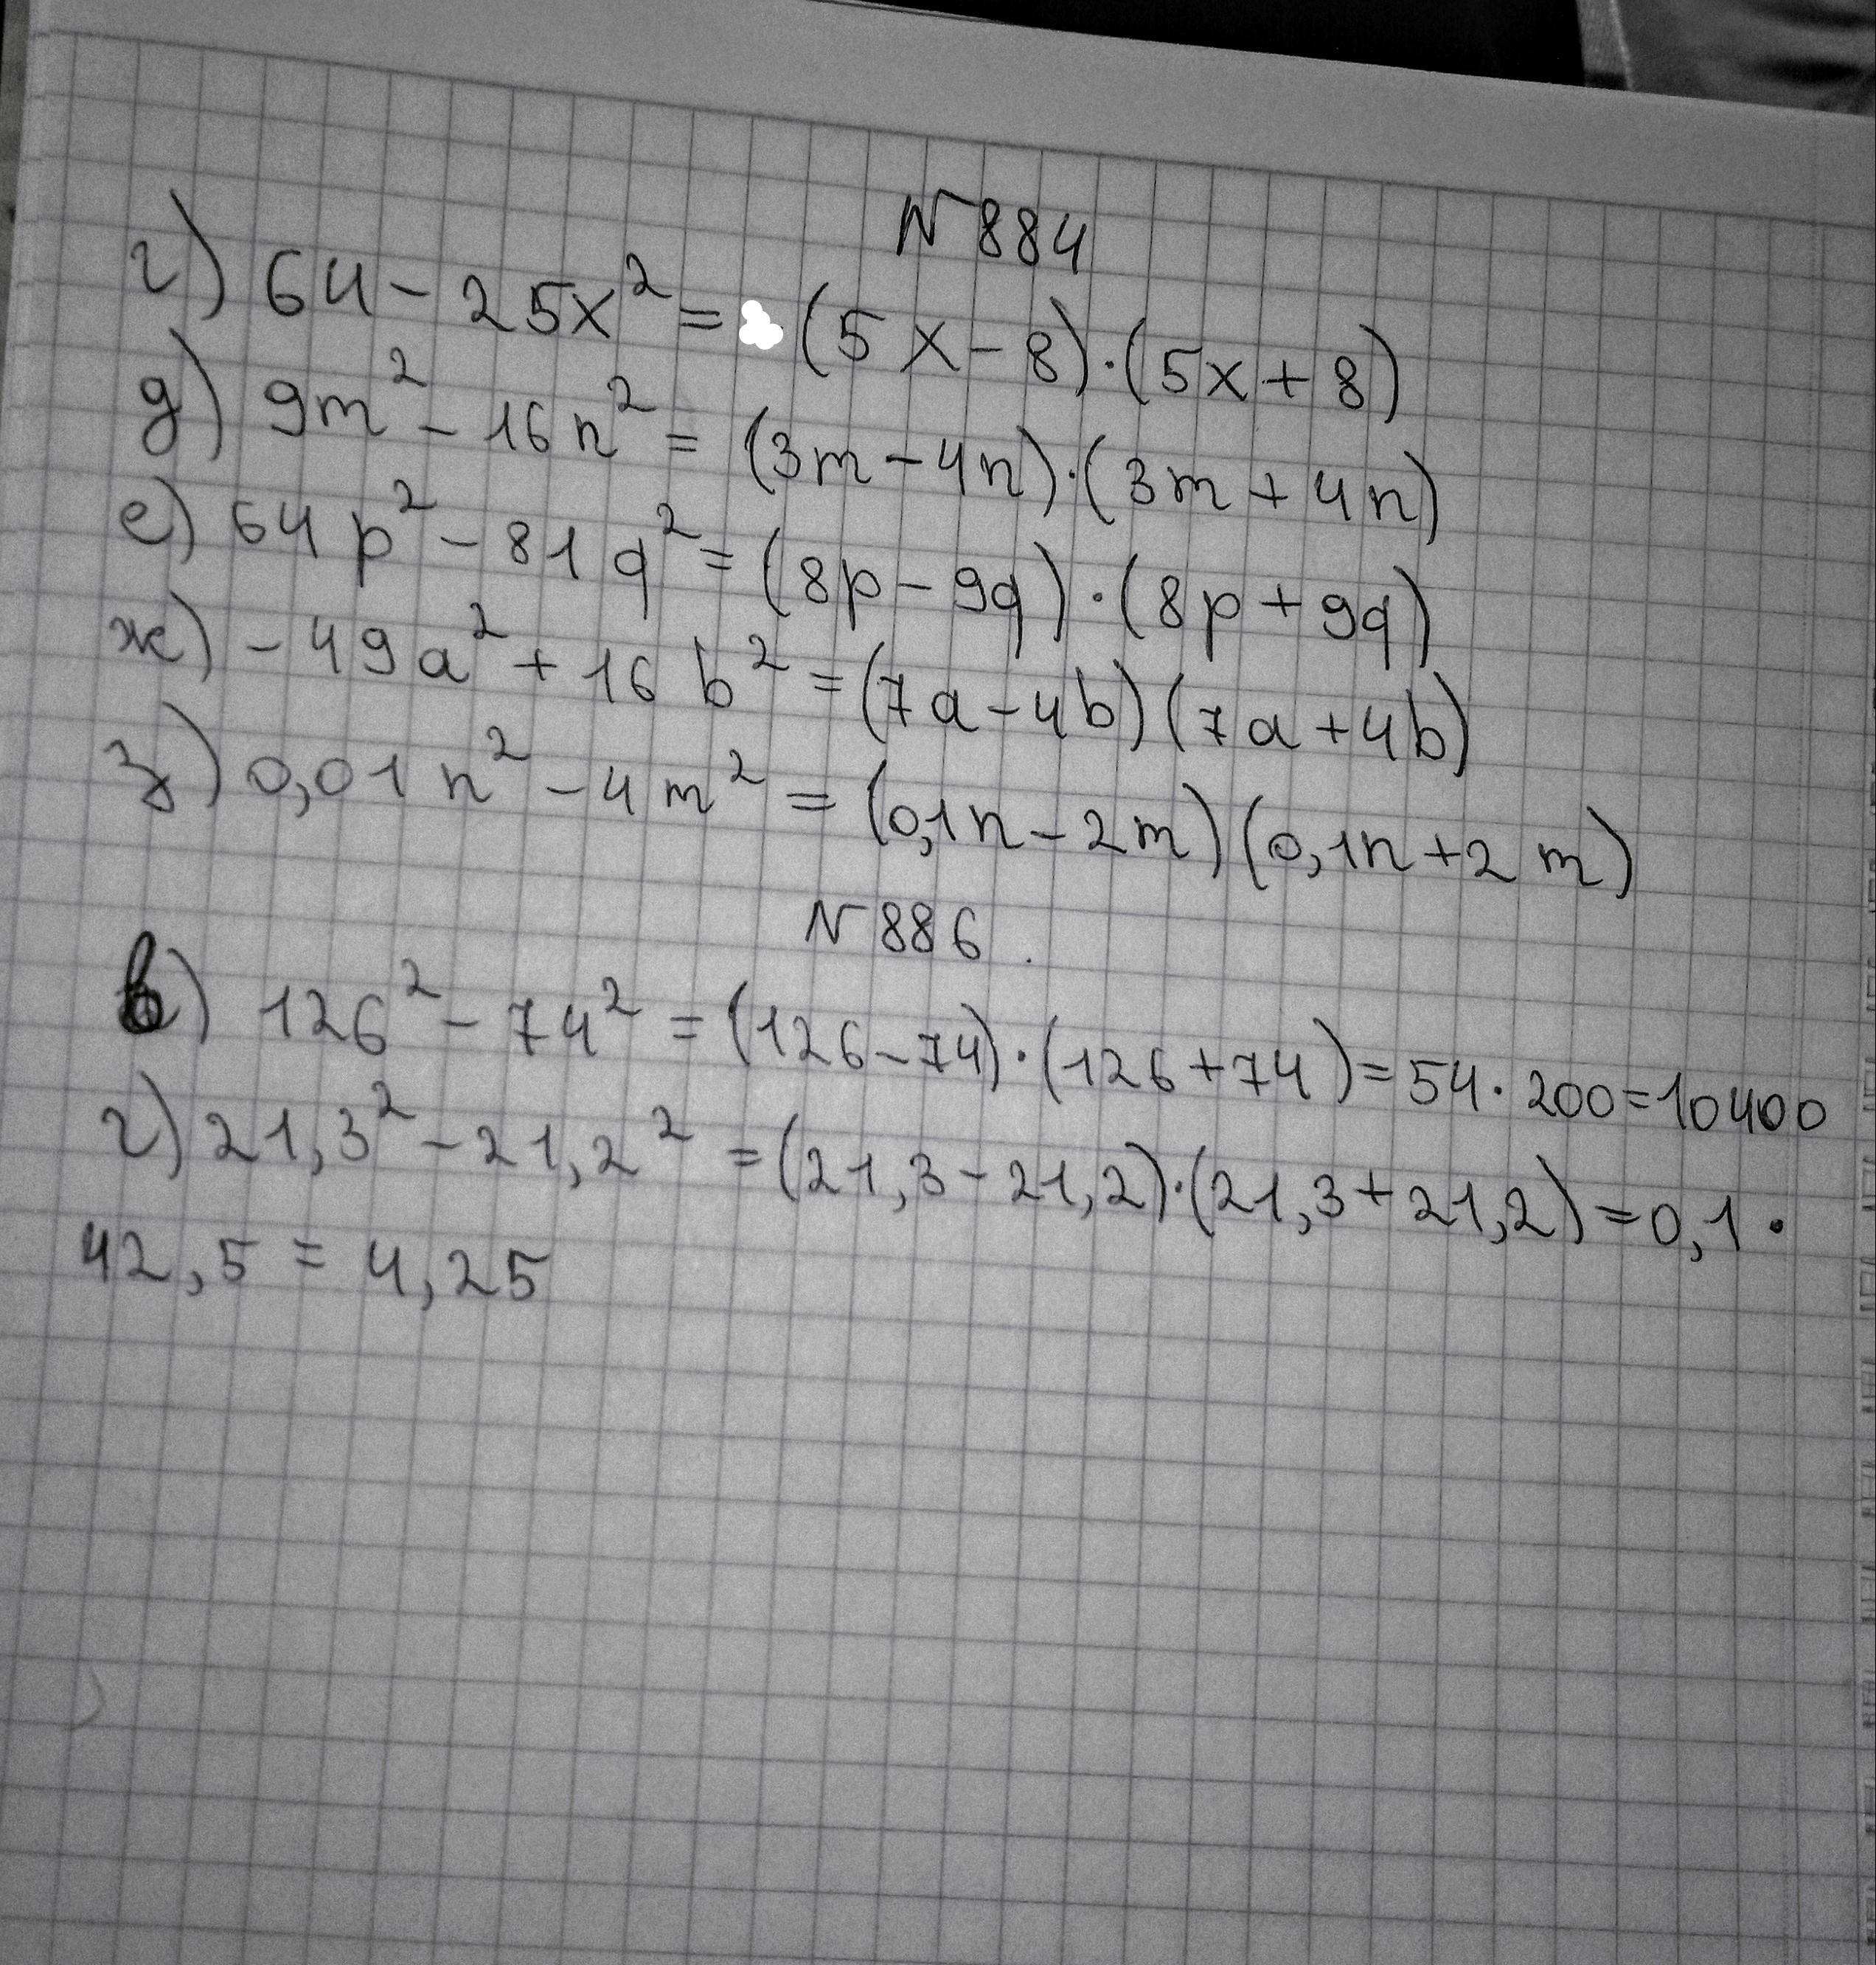 № 884
г) 64 - 25x² = (5x - 8)·(5x + 8)
д) 9m² - 16n² = (3m - 4n)·(3m + 4n)
е) 64p² - 81q² = (8p - 9q)·(8p + 9q)
ж) -49a² + 16b² = (7a - 4b)(7a + 4b)
з) 0,01n² - 4m² = (0,1n - 2m)(0,1n + 2m)
№ 886
в) 126² - 74² = (126 - 74)·(126 + 74) = 54·200 = 10400
г) 21,3² - 21,2² = (21,3 - 21,2)·(21,3 + 21,2) = 0,1·
42,5 = 4,25